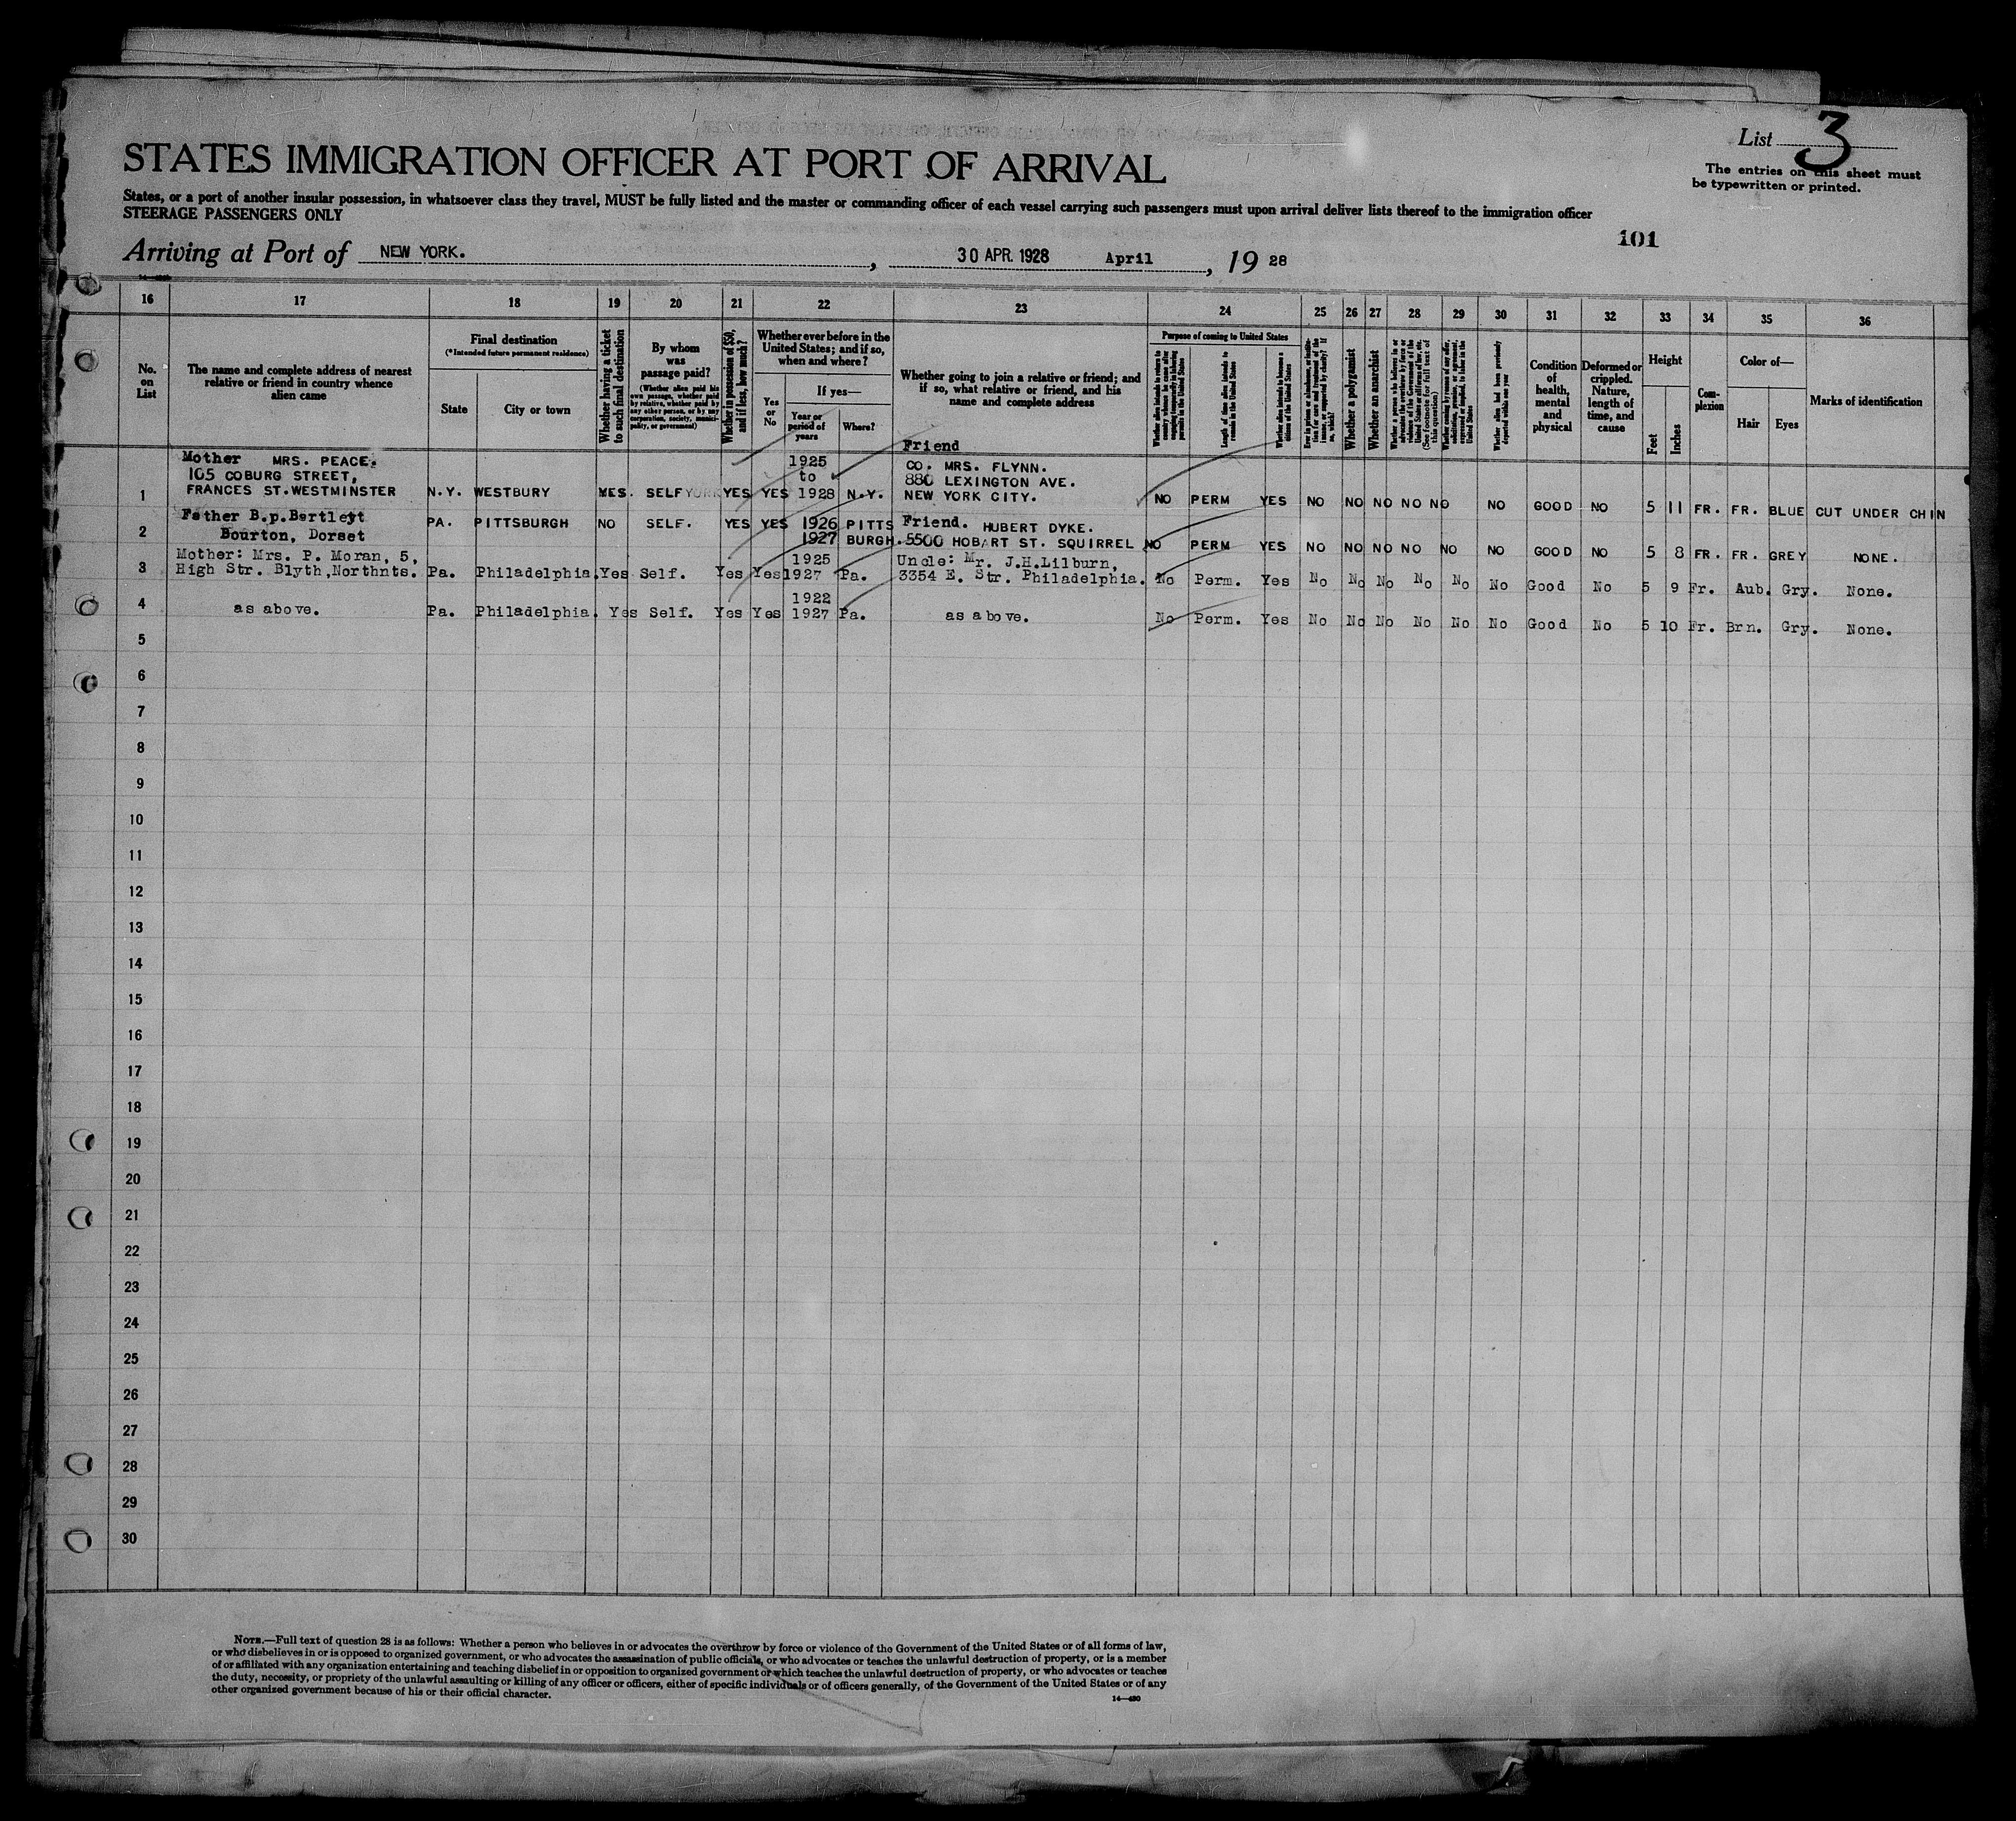 List 3
The entries on this sheet must
be typewritten or printed.
STATES IMMIGRATION OFFICER AT PORT OF ARRIVAL
States, or a port of another insular possession, in whatsoever class they travel, MUST be fully listed and the master or commanding officer of each vessel carrying such passengers must upon arrival deliver lists thereof to the immigration officer
STEERAGE PASSENGERS ONLY
101
Arriving at Port of NEW YORK. , 30 APR. 1928 April , 19 28
16 17 18 19 20 21 22 23 24 25 26 27 28 29 30 31 32 33 34 35 36
No. on List
The name and complete address of nearest relative or friend in country whence alien came
Final destination
(*Intended future permanent residence)
State
City or town
Whether having a ticket to such final destination
By whom was passage paid?
(Whether alien paid his own passage, whether paid by relative, whether paid by any other person, or by any corporation, society, municipality, or government)
Whether in possession of $50, and if less, how much?
Whether ever before in the United States; and if so, when and where?
Yes or No
If yes—
Year or period of years
Where?
Whether going to join a relative or friend; and if so, what relative or friend, and his name and complete address
Purpose of coming to United States
Length of time alien intends to remain in the United States
Whether alien intends to become a citizen of the United States
Whether a polygamist
Whether an anarchist
Condition of health, mental and physical
Deformed or crippled. Nature, length of time, and cause
Height
Feet
Inches
Complexion
Color of—
Hair
Eyes
Marks of identification
Mother MRS. PEACE. 1925 Friend
105 COBURG STREET, to CO. MRS. FLYNN.
880 LEXINGTON AVE.
1 FRANCES ST. WESTMINSTER N.Y. WESTBURY YES. SELF YES YES 1928 N.Y. NEW YORK CITY. NO PERM YES NO NO NO NO NO NO GOOD NO 5 11 FR. FR. BLUE CUT UNDER CHIN
Father B.p.Bartlett PA. PITTSBURGH NO SELF. YES YES 1926 PITTS Friend. HUBERT DYKE.
2 Bourton, Dorset 1927 BURGH. 5500 HOBART ST. SQUIRREL NO PERM YES NO NO NO NO NO NO GOOD NO 5 8 FR. FR. GREY NONE.
Mother: Mrs. P. Moran, 5, 1925 Uncle: Mr. J.H.Lilburn,
3 High Str. Blyth,Northnts. Pa. Philadelphia. Yes Self. Yes Yes 1927 Pa. 3354 E. Str. Philadelphia. No Perm. Yes No No No No No No Good No 5 9 Fr. Aub. Gry. None.
1922
4 as above. Pa. Philadelphia. Yes Self. Yes Yes 1927 Pa. as above. No Perm. Yes No No No No No No Good No 5 10 Fr. Brn. Gry. None.
5
6
7
8
9
10
11
12
13
14
15
16
17
18
19
20
21
22
23
24
25
26
27
28
29
30
NOTE.—Full text of question 28 is as follows: Whether a person who believes in or advocates the overthrow by force or violence of the Government of the United States or of all forms of law,
or who disbelieves in or is opposed to organized government, or who advocates the assassination of public officials, or who advocates or teaches the unlawful destruction of property, or is a member
of or affiliated with any organization entertaining and teaching disbelief in or opposition to organized government or which teaches the unlawful destruction of property, or who advocates or teaches
the duty, necessity, or propriety of the unlawful assaulting or killing of any officer or officers, either of specific individuals or of officers generally, of the Government of the United States or of any
other organized government because of his or their official character.
14—430